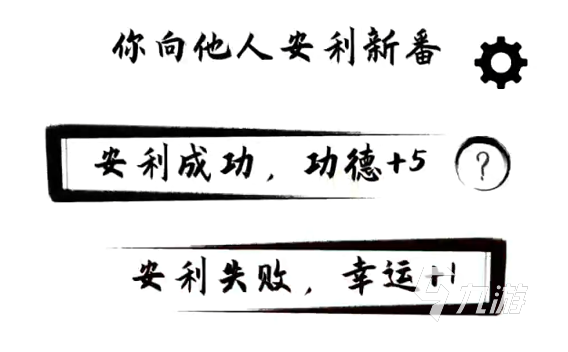 你向他人安利新番
安利成功，功德+5
?
安利失败，幸运+1
九游